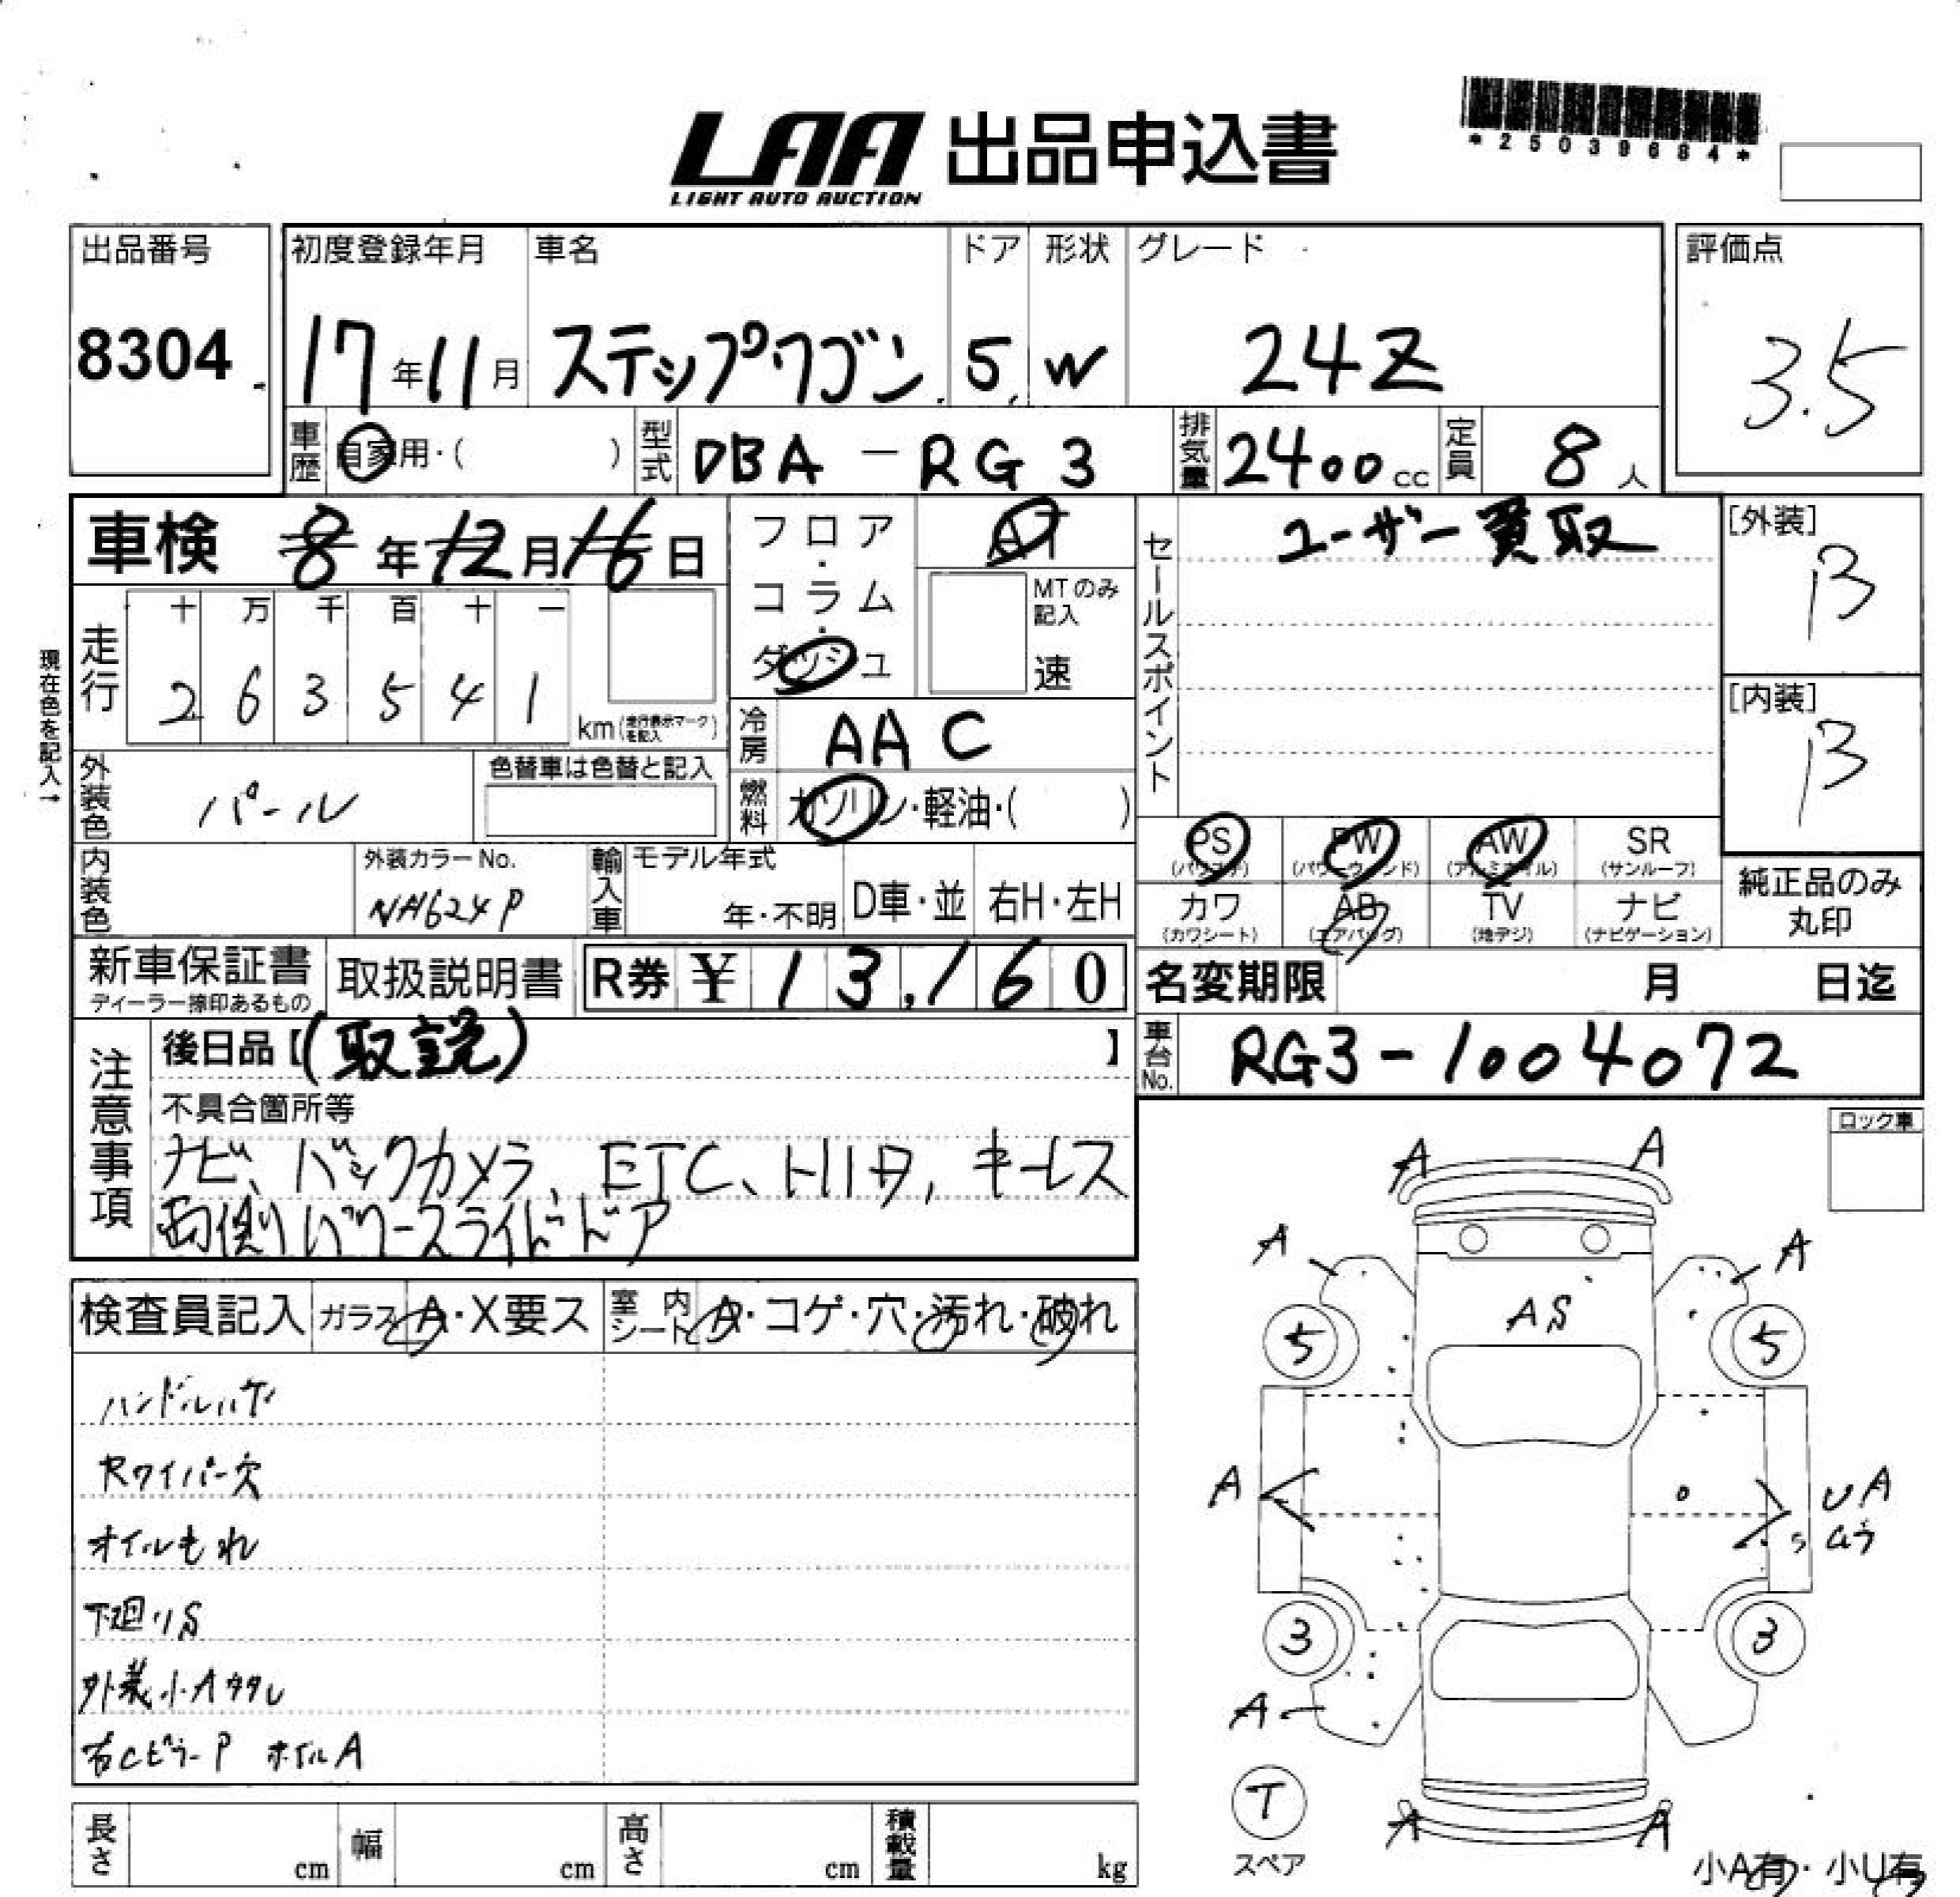 *25039684*
LAA 出品申込書
LIGHT AUTO AUCTION
出品番号
8304
初度登録年月
17年11月
車名
ステップワゴン
ドア
5
形状
W
グレード
24Z
評価点
3.5
車歴
自家用・( )
型式
DBA-RG3
排気量
2400cc
定員
8人
車検 8年12月16日
フロア・コラム・ダッシュ
AT
MTのみ記入
速
セールスポイント
ユーザー買取
[外装]
B
[内装]
B
現在色を記入→
走行
十 万 千 百 十 一
2 6 3 5 4 1
km(走行表示マークを記入)
冷房
AAC
外装色
パール
色替車は色替と記入
燃料
ガソリン・軽油・( )
PS PW AW SR
(パワステ) (パワーウィンド) (アルミホイル) (サンルーフ)
カワ AB TV ナビ
(カワシート) (エアバッグ) (地デジ) (ナビゲーション)
純正品のみ
丸印
内装色
外装カラーNo.
NH624P
輸入車
モデル年式
年・不明
D車・並
右H・左H
新車保証書
ディーラー捺印あるもの
取扱説明書
R券 ¥13,160
名変期限 月 日迄
車台No.
RG3-1004072
注意事項
後日品【(取説) 】
不具合箇所等
ナビ、バックカメラ、ETC、HID、キーレス
両側パワースライドドア
ロック車
検査員記入
ガラス A・X要ス
室内シート A・コゲ・穴・汚れ・破れ
ハンドルハゲ
Rワイパー穴
オイルもれ
下廻りS
外装小A
右CピラーP ホイルA
A A
A A
AS
5 5
A UA
ムラ
3 3
A
T
スペア
A A
小A有・小U有
長さ cm
幅 cm
高さ cm
積載量 kg